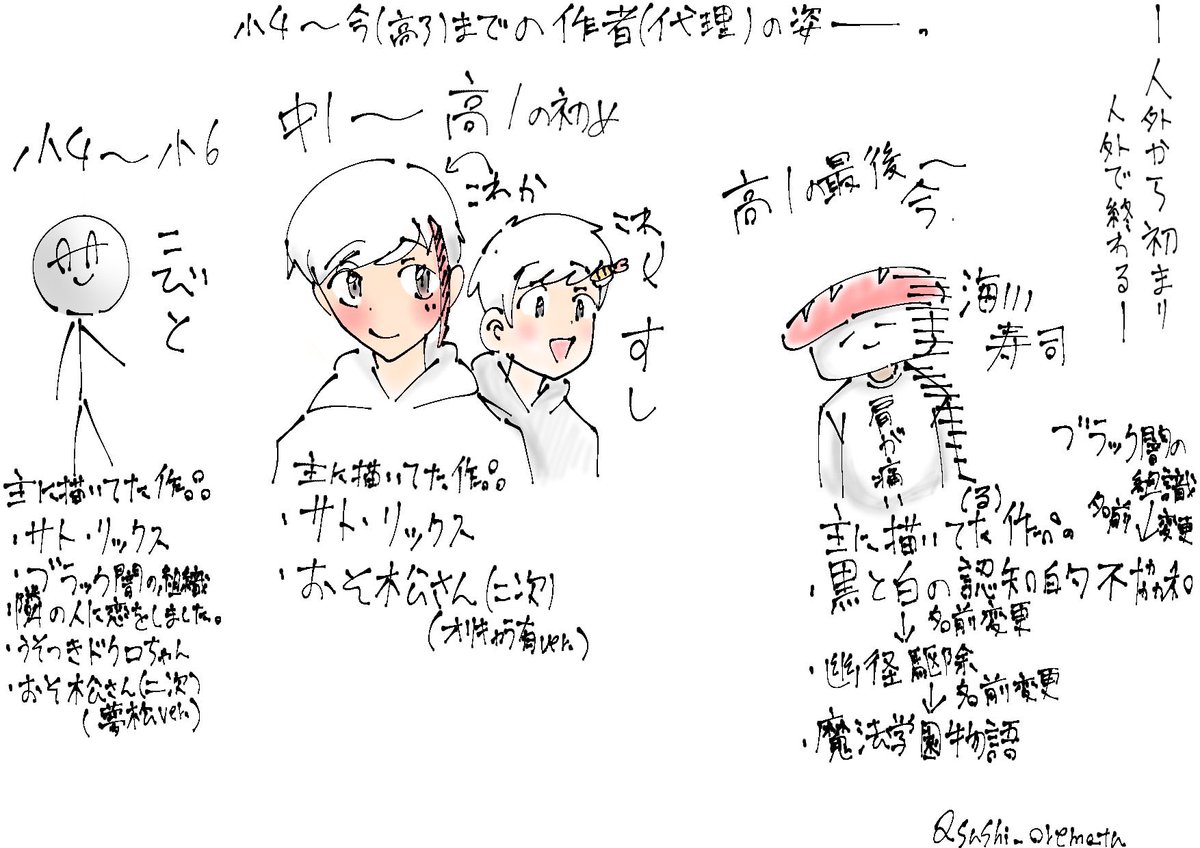 小4～今(高3)までの作者(代理)の姿――。
―人外から初まり
人外で終わる―
小4～小6
こびと
主に描いてた作品。
・サト・リックス
・ブラック闇の組織
・隣の人に恋をしました。
・うそつきドクロちゃん
・おそ松さん(二次)
(夢松ver.)
中1～高1の初め
これか
これ
すし
主に描いてた作品。
・サト・リックス
・おそ松さん(二次)
(オリキャラ有ver.)
高1の最後～
今.
海川
寿司
肩が痛い
主に描いてた(る)作品。
・黒と白の認知的不協和。
↓名前変更
ブラック闇の
組織
名前↓変更
・幽怪駆除
↓名前変更
・魔法学園物語